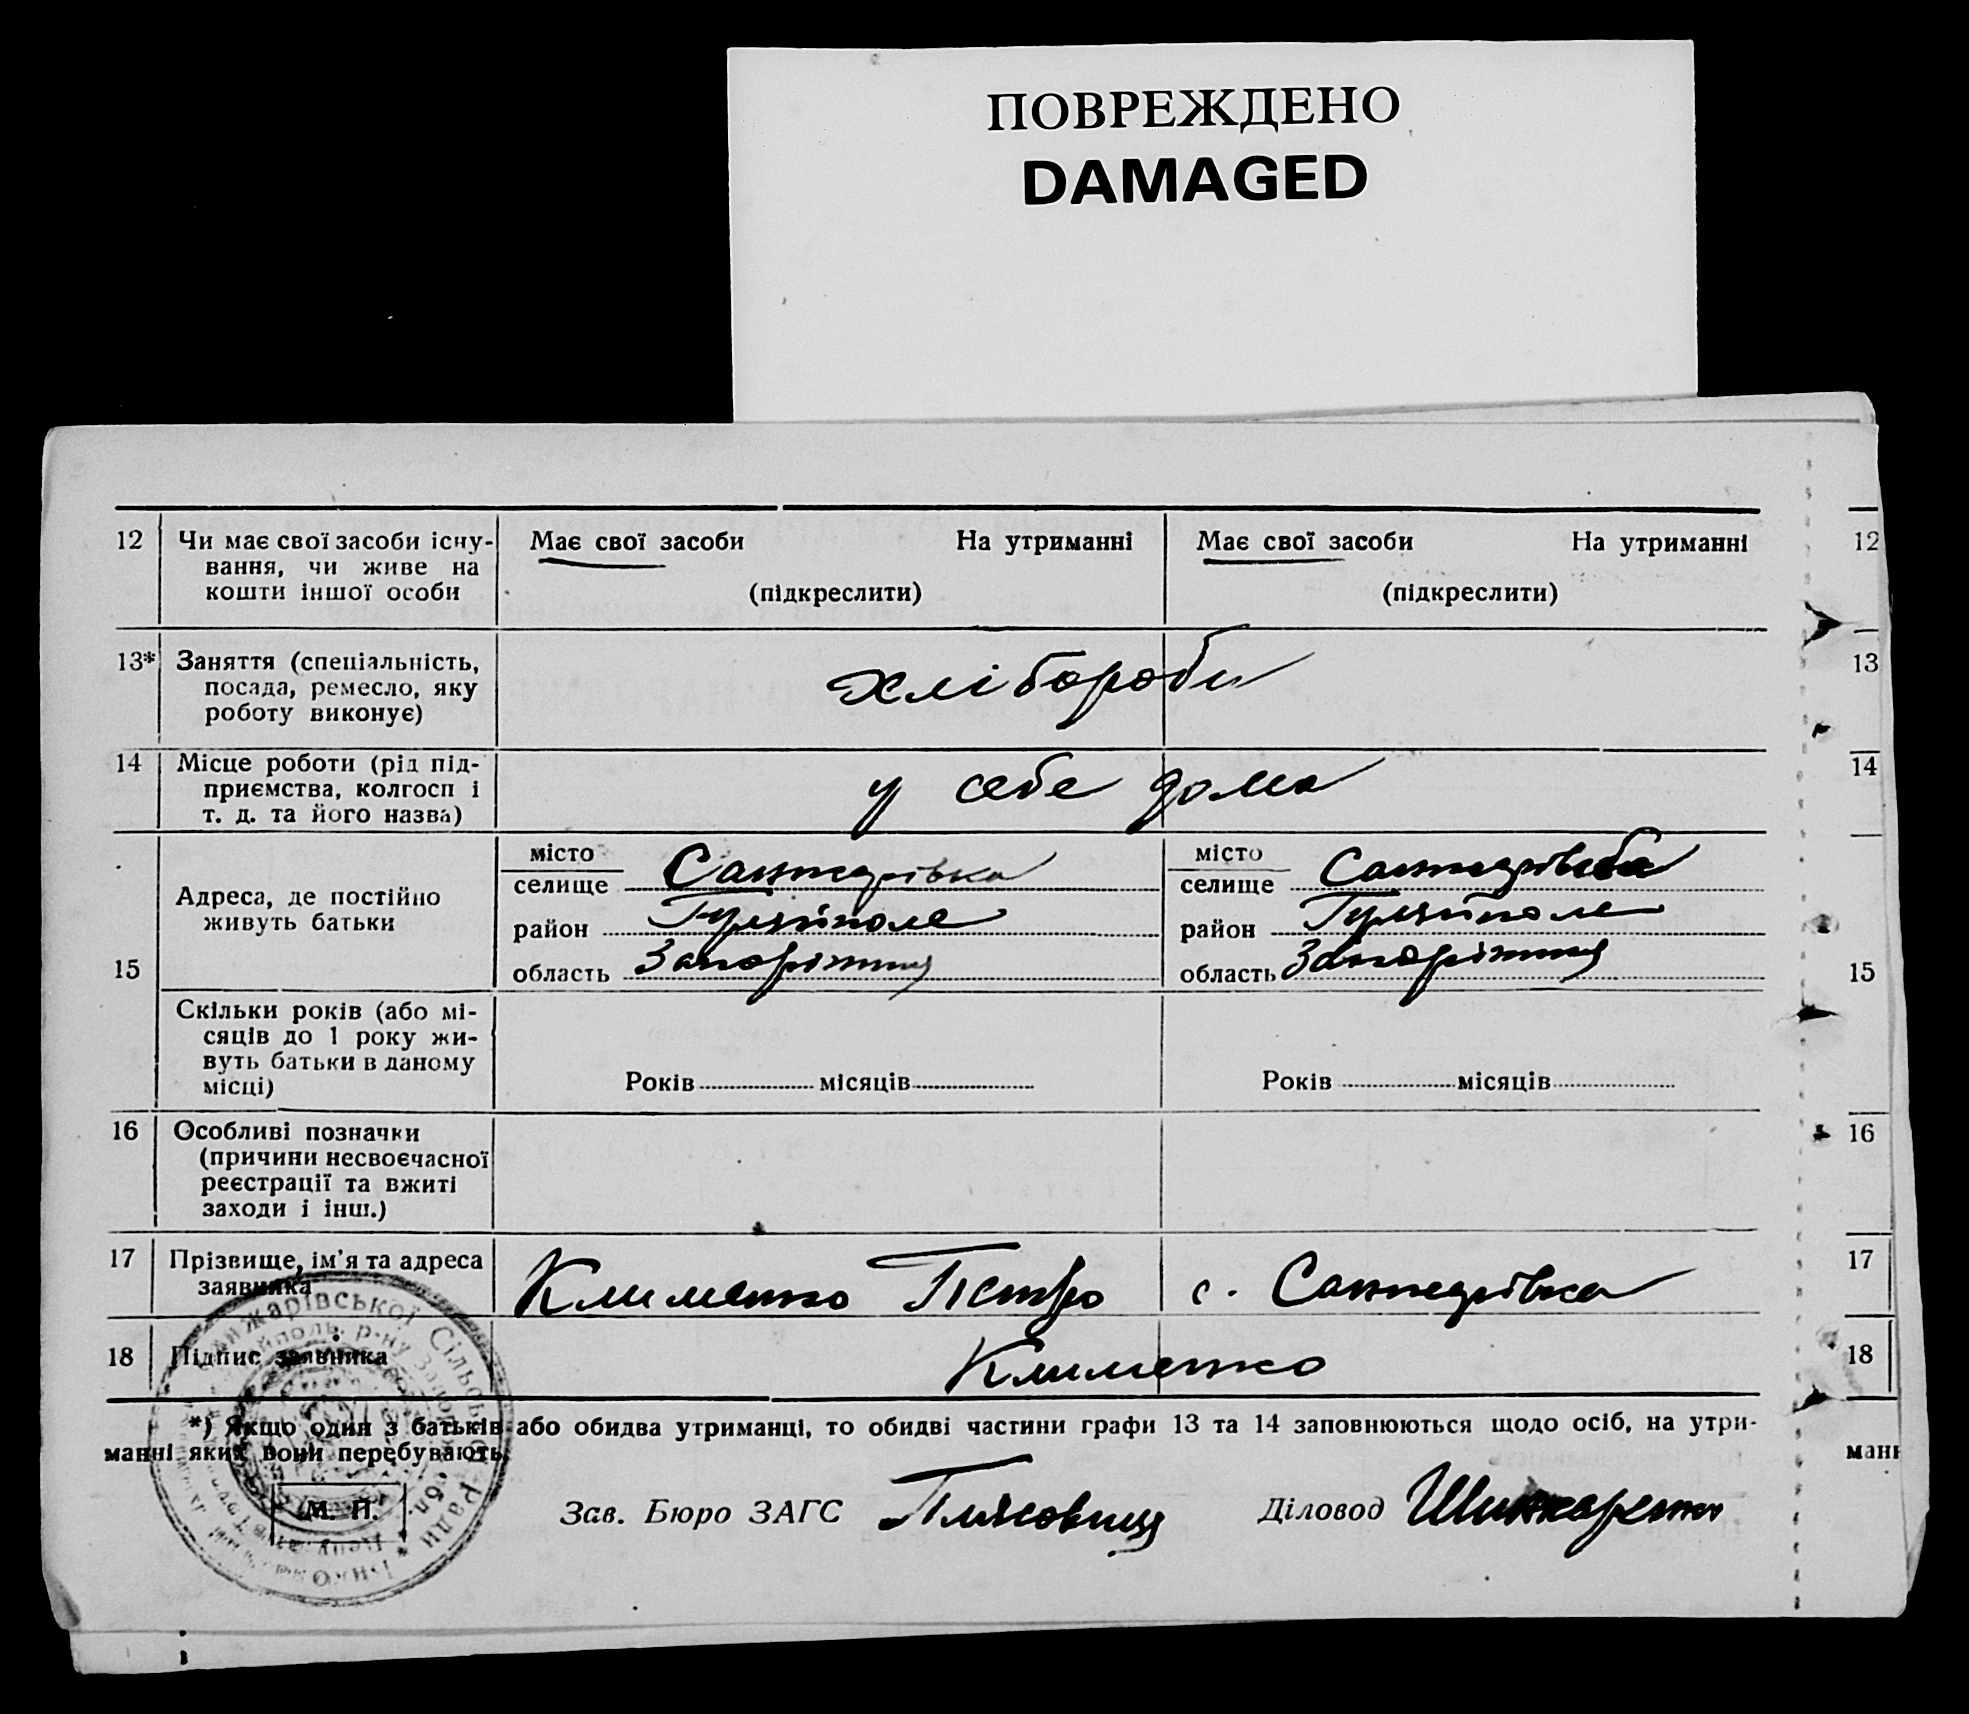 ПОВРЕЖДЕНО
DAMAGED
12 Чи має свої засоби існу- Має свої засоби На утриманні Має свої засоби На утриманні 12
вання, чи живе на
кошти іншої особи (підкреслити) (підкреслити)
13* Заняття (спеціальність, 13
посада, ремесло, яку хлібороби
роботу виконує)
14 Місце роботи (рід під- 14
приємства, колгосп і у себе дома
т. д. та його назва)
місто місто
селище Санжарівка селище Санжарівка
Адреса, де постійно
живуть батьки район Гуляйполе район Гуляйполе
15 область Запоріжжя область Запоріжжя 15
Скільки років (або мі-
сяців до 1 року жи-
вуть батьки в даному
місці) Років місяців Років місяців
16 Особливі позначки 16
(причини несвоєчасної
реєстрації та вжиті
заходи і інш.)
17 Прізвище, ім'я та адреса 17
заявника Клименко Петро с. Санжарівка
18 Підпис заявника Клименко 18
*) Якщо один з батьків або обидва утриманці, то обидві частини графи 13 та 14 заповнюються щодо осіб, на утри-
манні яких вони перебувають. манн
М. П. Зав. Бюро ЗАГС Діловод Шинкаренко
Санжарівської Сільської Ради